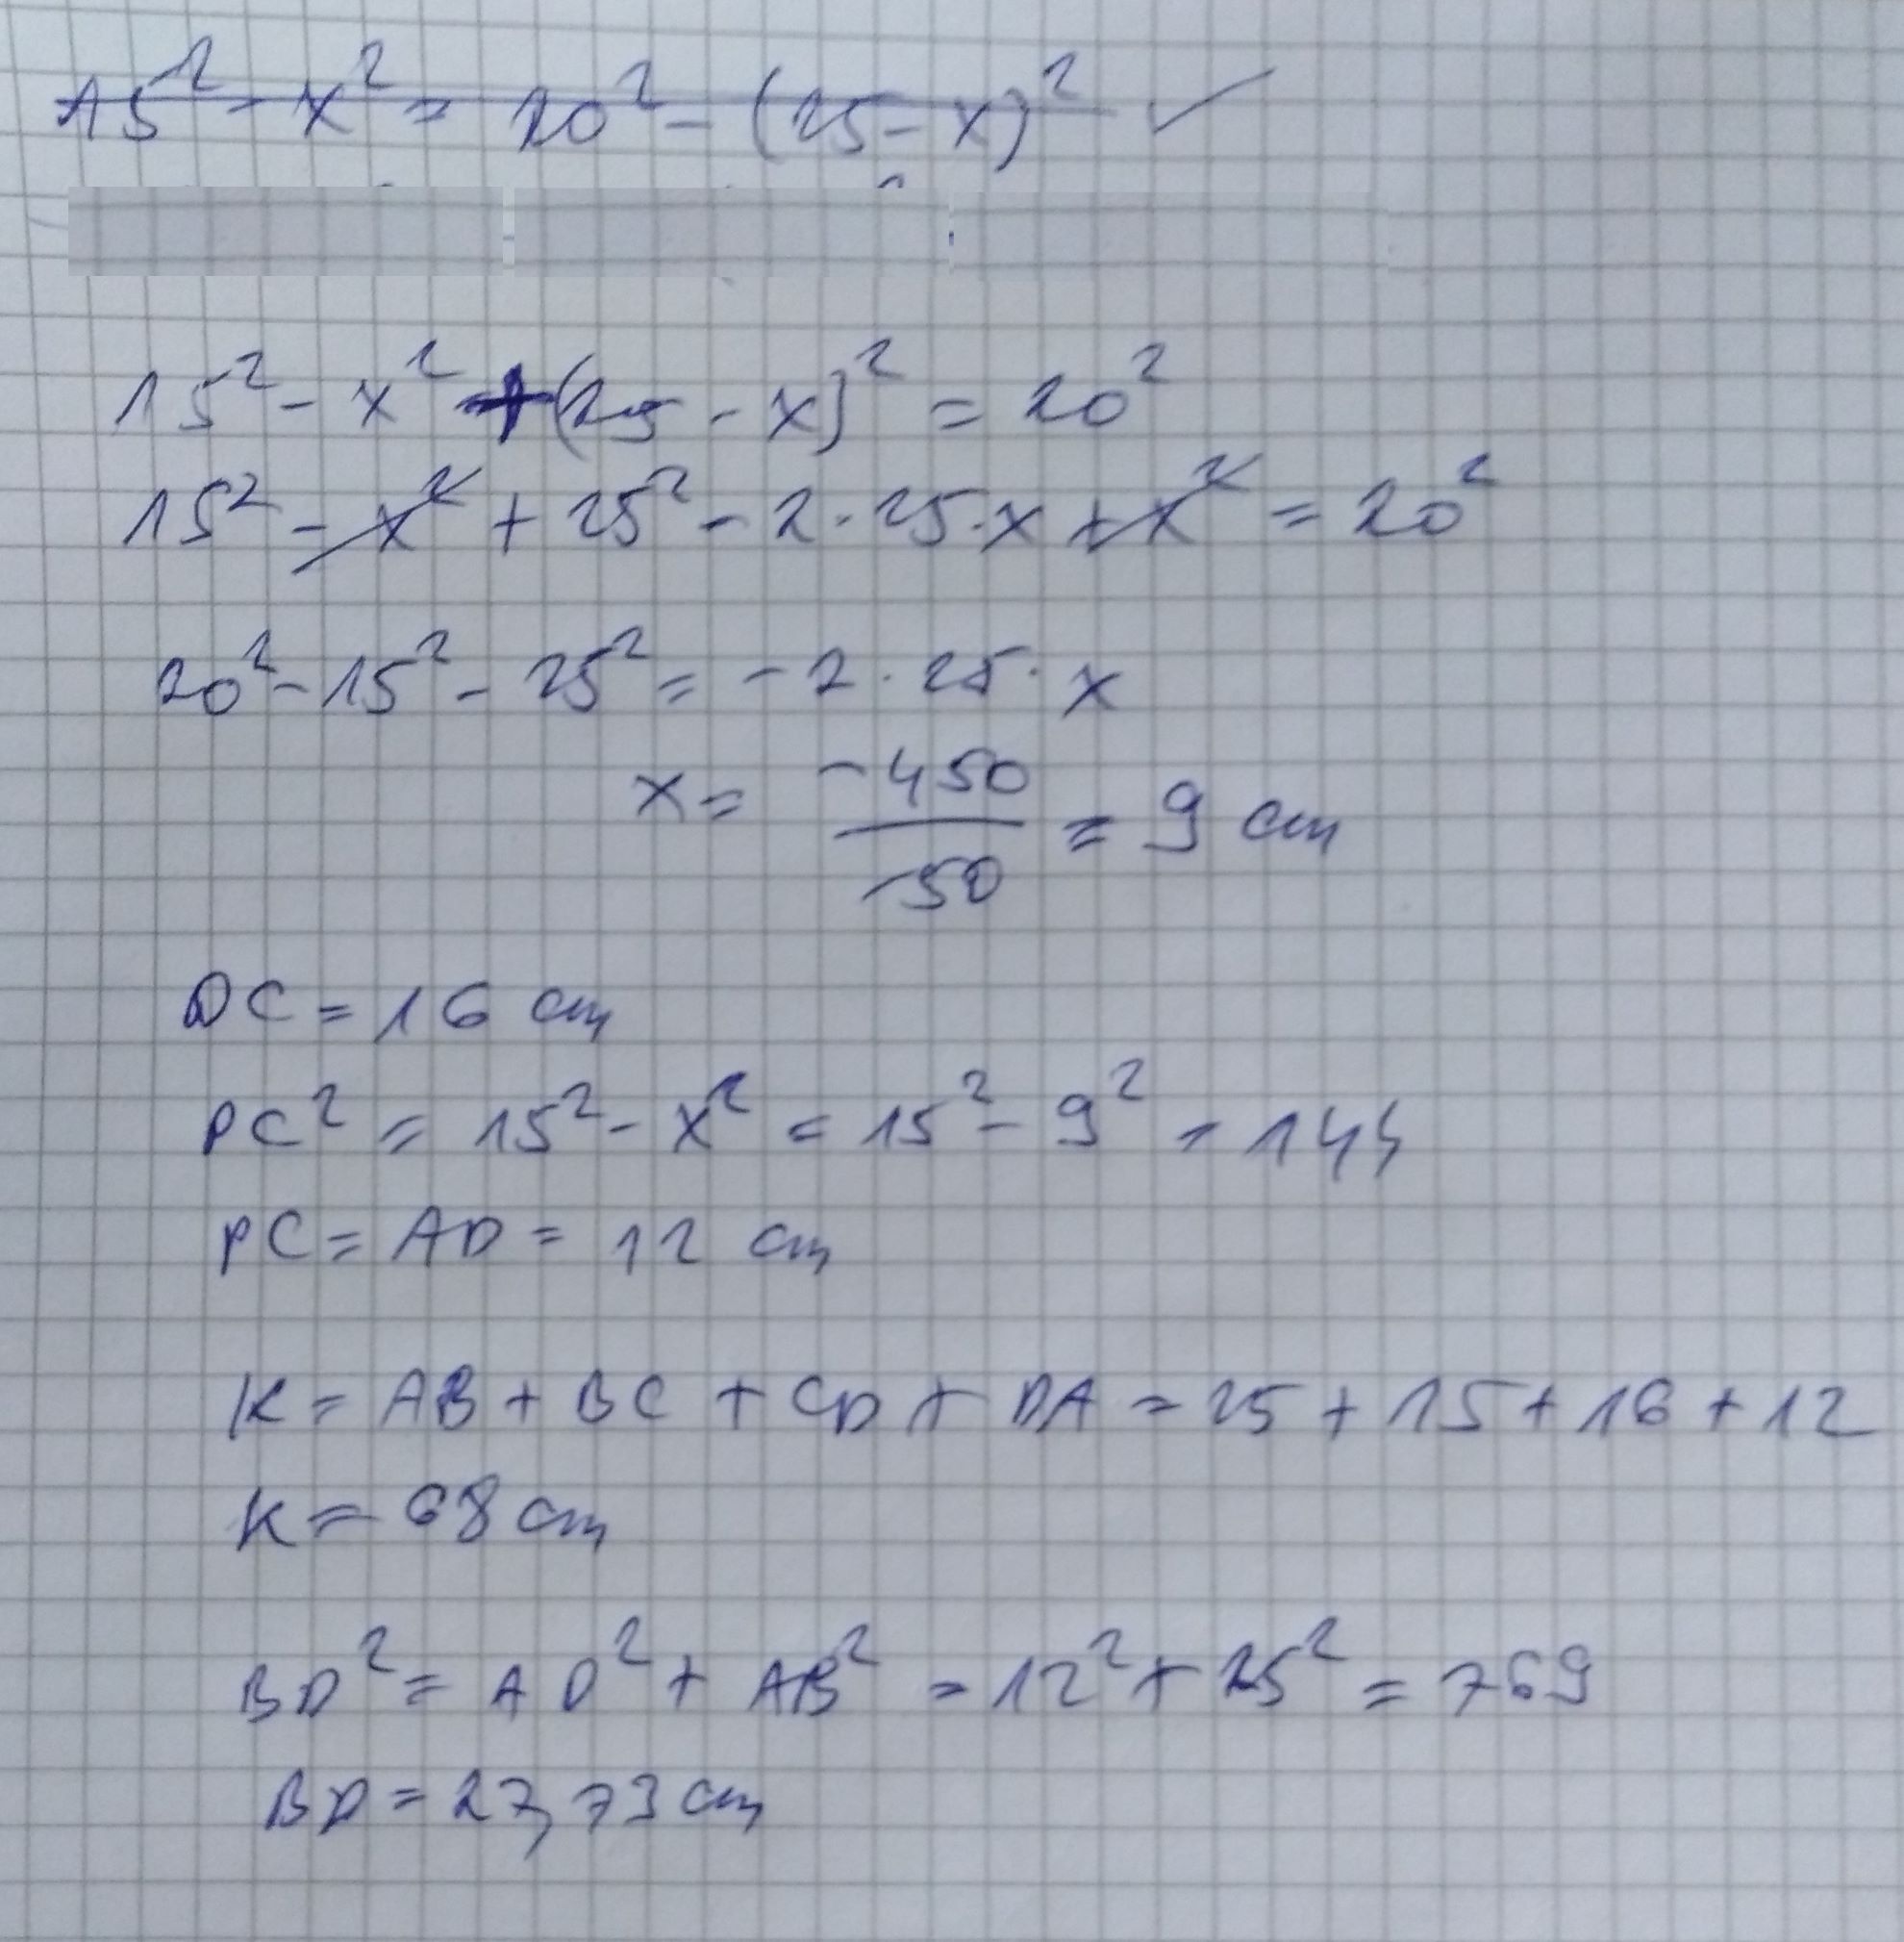 15² - x² = 20² - (25 - x)² ✓
15² - x² + (25 - x)² = 20²
15² - x² + 25² - 2 · 25 · x + x² = 20²
20² - 15² - 25² = - 2 · 25 · x
x = -450 / -50 = 9 cm
DC = 16 cm
PC² = 15² - x² = 15² - 9² = 144
PC = AD = 12 cm
K = AB + BC + CD + DA = 25 + 15 + 16 + 12
K = 68 cm
BD² = AD² + AB² = 12² + 25² = 769
BD = 27,73 cm